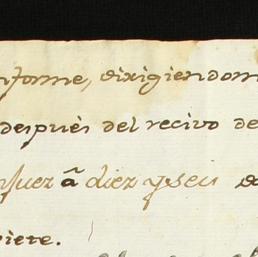 informe, dirigiendom
despues del recivo de
nfuez â diez y seis de
viere.